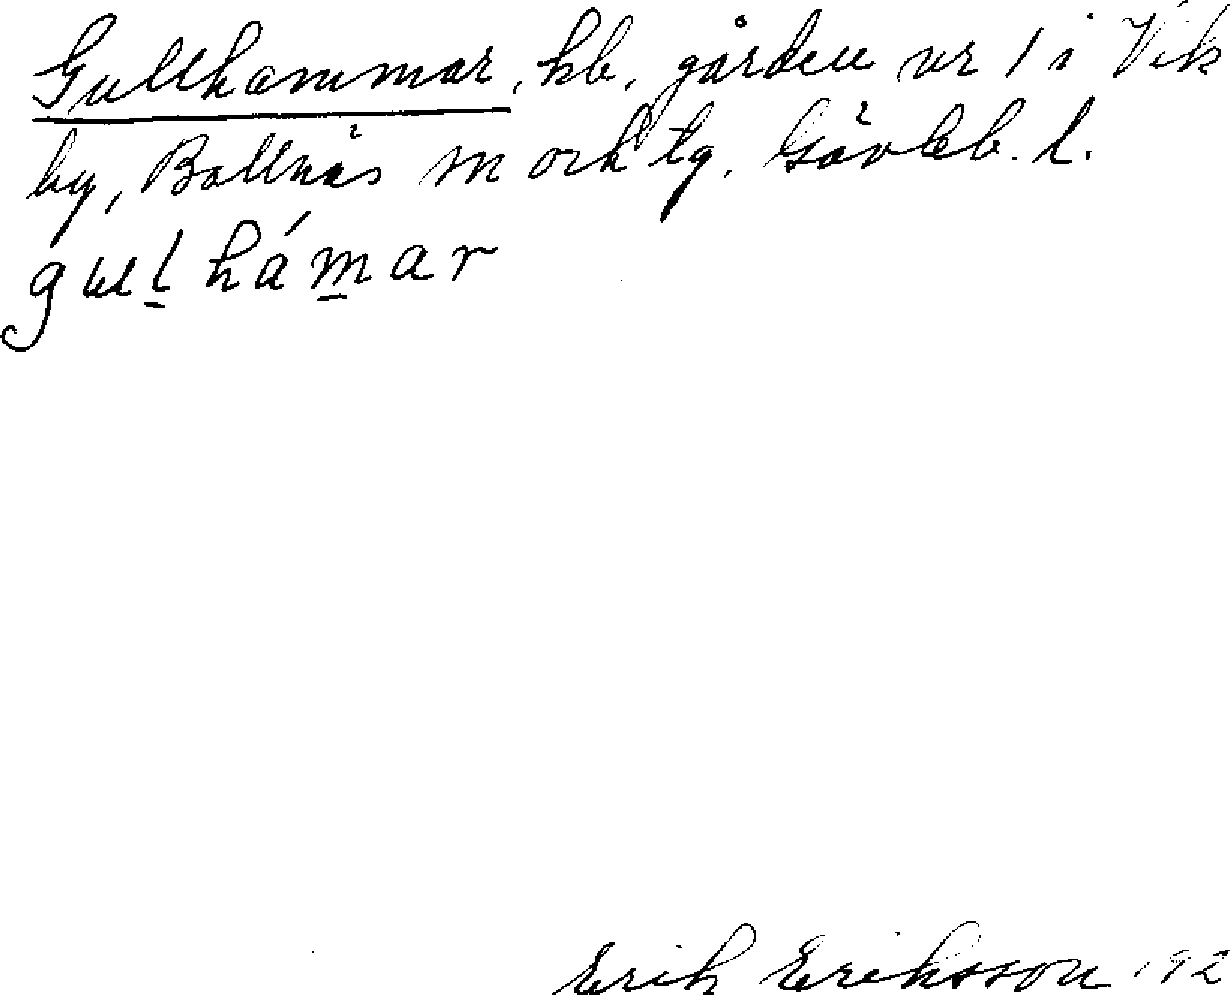 Gullhammar, hb, gården nr 1 i Vik
by, Bollnäs sn och tg, Gävleb. l.
gullhámar
Erik Eriksson 192